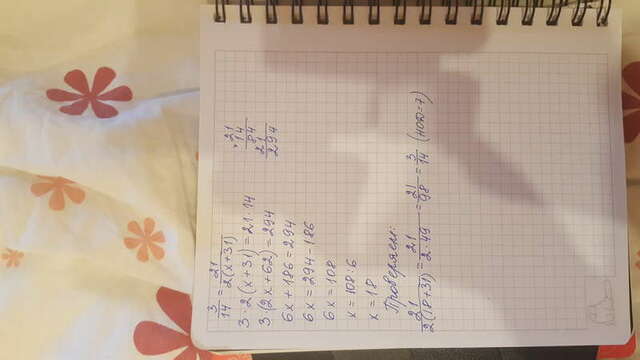 3/14 = 21/2(x+31)
3·2(x+31)=21·14
3·(2x+62)=294
6x+186=294
6x=294-186
6x=108
x=108:6
x=18
×21
14
84
21
294
Проверяем:
21/2(18+31) = 21/2·49 = 21/98 = 3/14 (НОД=7)